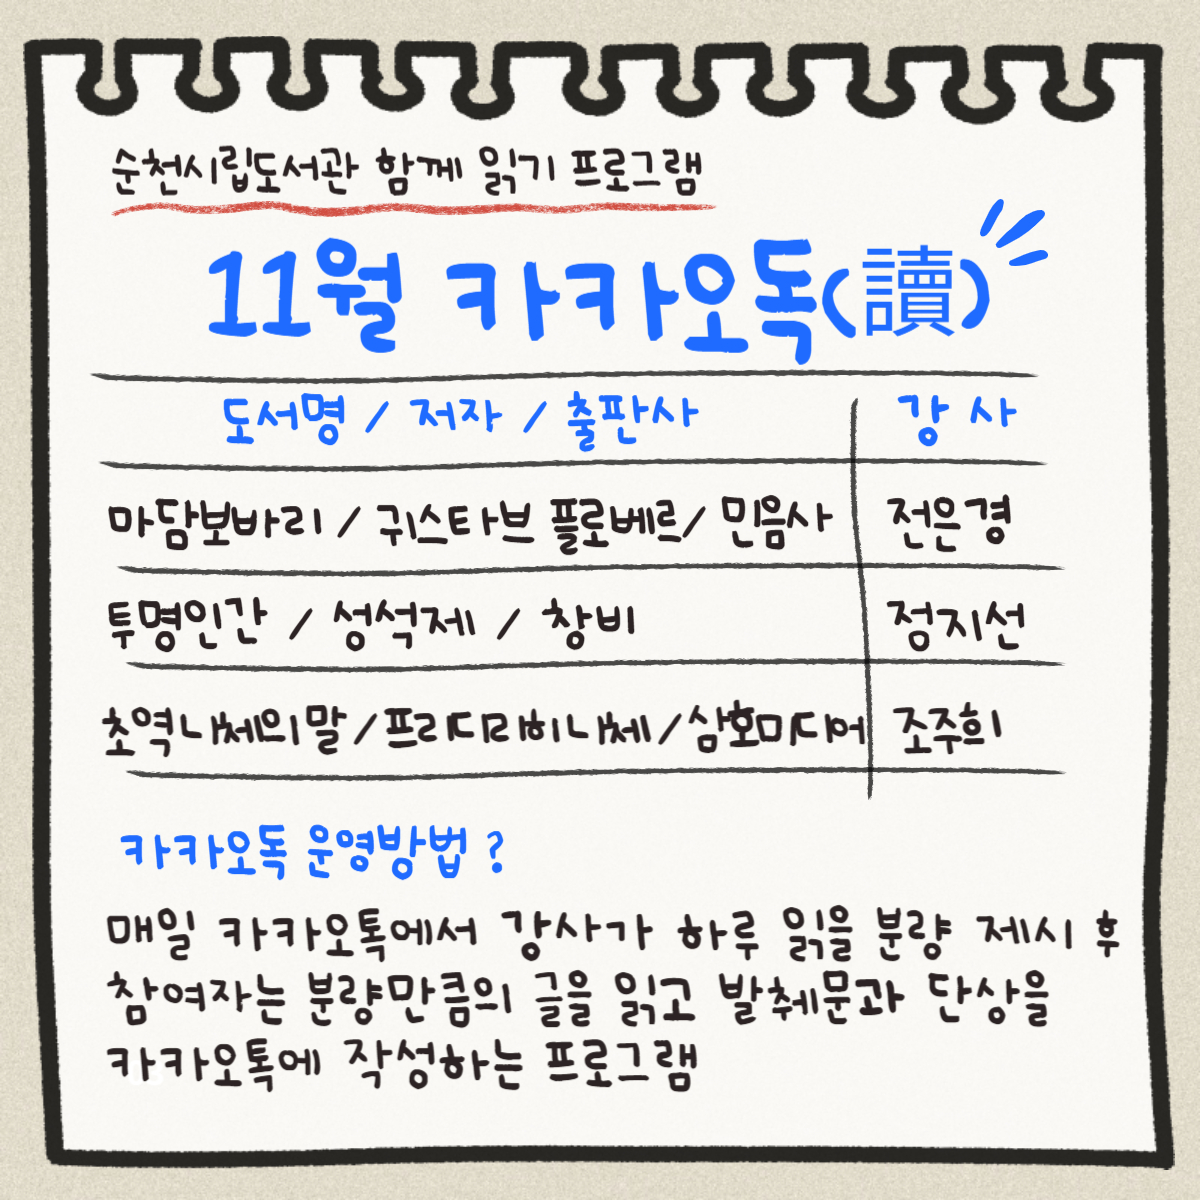 순천시립도서관 함께 읽기 프로그램
11월 카카오독(讀)
도서명 / 저자 / 출판사 강 사
마담보바리 / 귀스타브 플로베르/ 민음사 전은경
투명인간 / 성석제 / 창비 정지선
초역니체의말/프리디리히니체/삼호미디어 조주희
카카오독 운영방법 ?
매일 카카오톡에서 강사가 하루 읽을 분량 제시 후
참여자는 분량만큼의 글을 읽고 발췌문과 단상을
카카오톡에 작성하는 프로그램